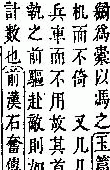 為橐以馮之玉篇
机而不倚 又几几
兵車而不用故其首
執之前驅赴敵則
計數也前漢石奮傳